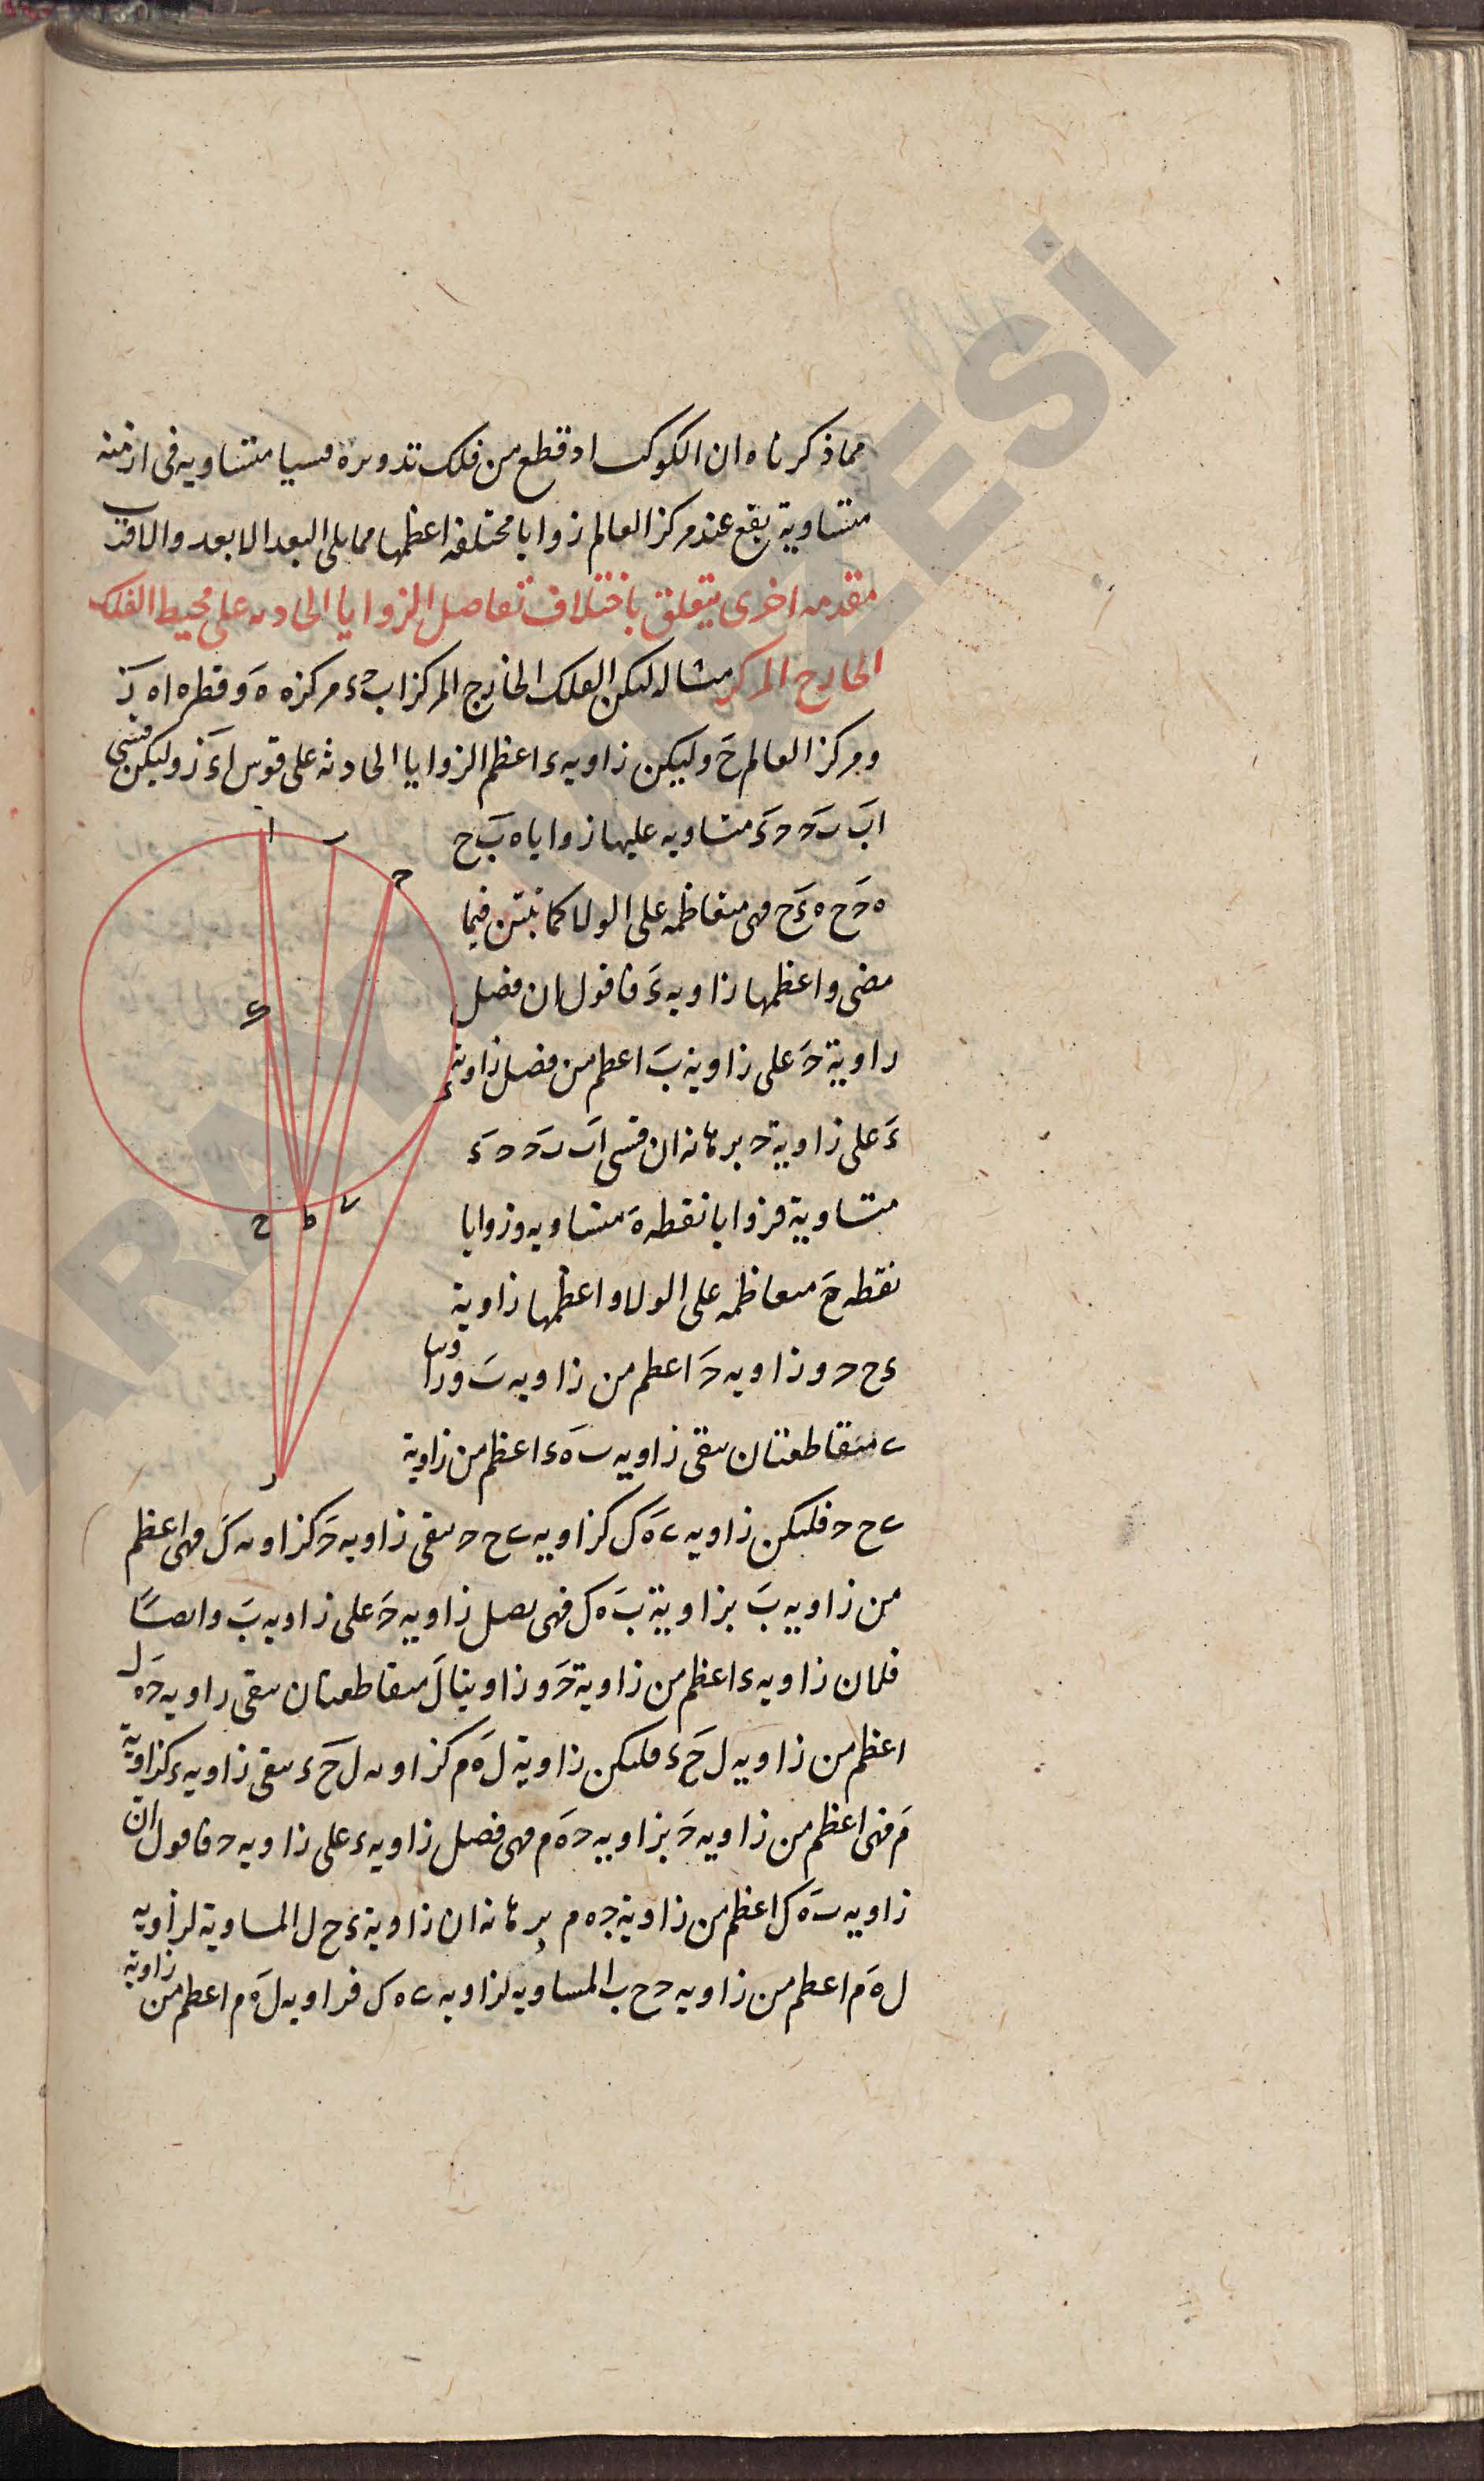 مما ذكرناه ان الكوكب اذ قطع من فلك تدويره قسيا متساويه في ازمنه
متساوية يقع عند مركز العالم زوايا مختلفه اعظمها مما يلى البعد الابعد والاقرب
مقدمه اخرى يتعلق باختلاف تفاضل الزوايا الحادثه على محيط الفلك
الخارج المركز مثاله ليكن الفلك الخارج المركز اب حء مركزه ه وقطره اه ز
ومركز العالم ح وليكن زاويه ء اعظم الزوايا الحادثه على قوس اء ز وليكن قسي
اب ب ح ح ء متساويه عليها زوايا ه ب ح
ه ح ح ه ء ح فهى متفاظمه على الولا كما نبين فيما
مضى واعظمها زاويه ء فاقول ان فضل
زاوية ح على زاوية ب اعظم من فضل زاوية
ء على زاوية ح برهانه ان قسى اب ب ح ح ء
متساوية فزوايا نقطه ه متساويه وزوايا
نقطه ح متعاظمه على الولا واعظمها زاوية
ء ح ح وزاويه ح اعظم من زاويه ب وزاويتا
ى متقاطعتان يبقى زاويه ب ه ء اعظم من زاوية
ى ح ح فليكن زاويه ى ه ك كزاويه ى ح ح يبقى زاويه ح كزاويه ك فهى اعظم
من زاويه ب بزاوية ب ه ك فهى فضل زاويه ح على زاويه ب وايضًا
فلان زاويه ء اعظم من زاوية ح وزاويتا ل متقاطعتان يبقى زاويه ح ه ل
اعظم من زاويه ل ح ء فليكن زاوية ل ه م كزاويه ل ح ء يبقى زاويه ء كزاوية
م فهى اعظم من زاويه ح بزاويه ح ه م فهى فضل زاويه ء على زاويه ح فاقول ان
زاويه ب ه ك اعظم من زاوية ح ه م برهانه ان زاوية ء ح ل المساوية لزاويه
ل ه م اعظم من زاويه ح ح ب المساويه لزاويه ى ه ك فزاويه ل ه م اعظم من زاوية
ا
ب
ح
ى
ء
ح
ط
ز
ARAY
ESİ